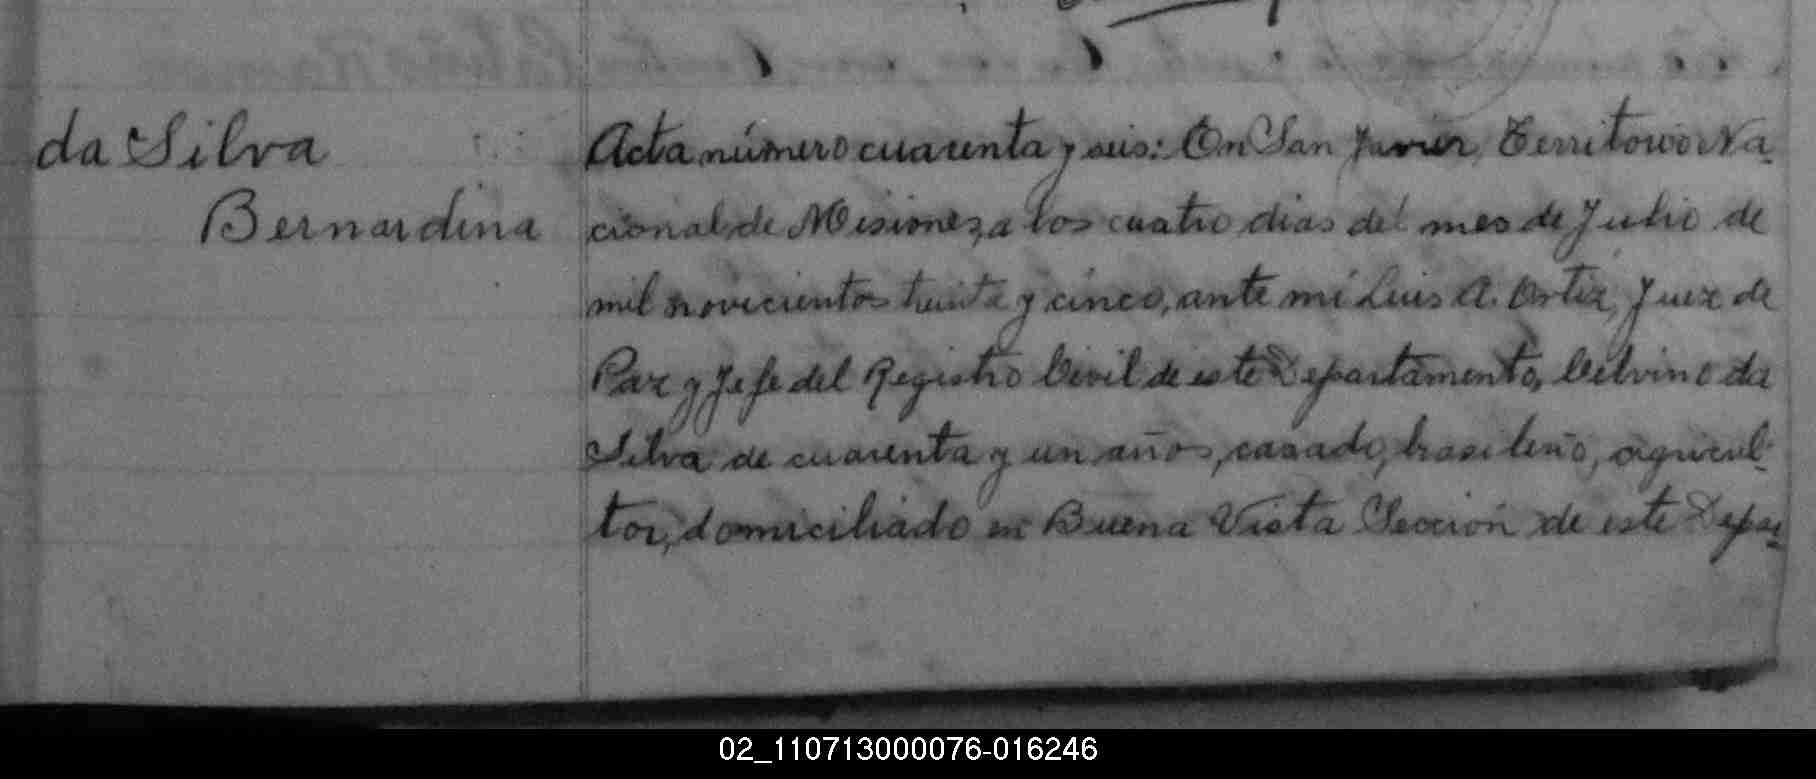 da Silva
Bernardina
Acta número cuarenta y seis: En San Javier, Territorio Na-
cional de Misiones, a los cuatro dias del mes de Julio de
mil novecientos treinta y cinco, ante mí Luis A. Ortiz, Juez de
Paz y Jefe del Registro Civil de este Departamento, Celvino da
Silva de cuarenta y un años, casado, brasileño, agricul-
tor, domiciliado en Buena Vista Sección de este Depar-
02_110713000076-016246